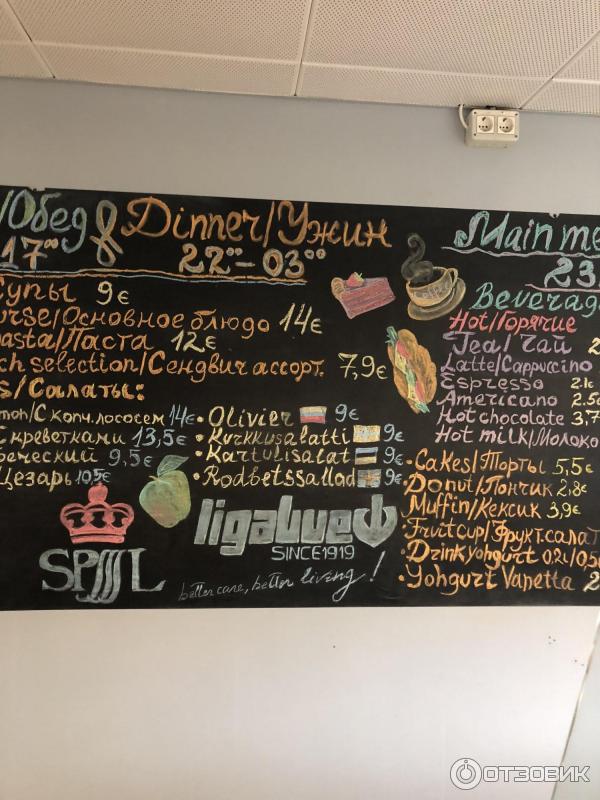 /Обед & Dinner/Ужин
17°° 22°°-03°°
Супы 9€
urse/Основное блюдо 14€
asta/Паста 12€
ch selection/Сендвич ассорт. 7,9€
s/Салаты:
mon/С копч. лососем 14€
С креветками 13,5€
реческий 9,5€
Цезарь 10,5€
• Olivier 9€
• Kurkkusalatti 9€
• Kartulisalat 9€
• Rodbetssallad 9€
SPJJJL
ligabue
SINCE 1919
better care, better living!
Main me
23
Beverag
Hot/Горячие
Tea/Чай 2
Latte/Cappuccino
Espresso 2.1€
Americano 2.5€
Hot chocolate 3,7
Hot milk/Молоко
• Cakes/Торты 5,5€
• Donut/Пончик 2,8€
Muffin/Кексик 3,9€
• Fruit cup/Фрукт.салат
• Drink yohgurt 0.2l/0,5
• Yohgurt Vanetta 2
ОТЗОВИК